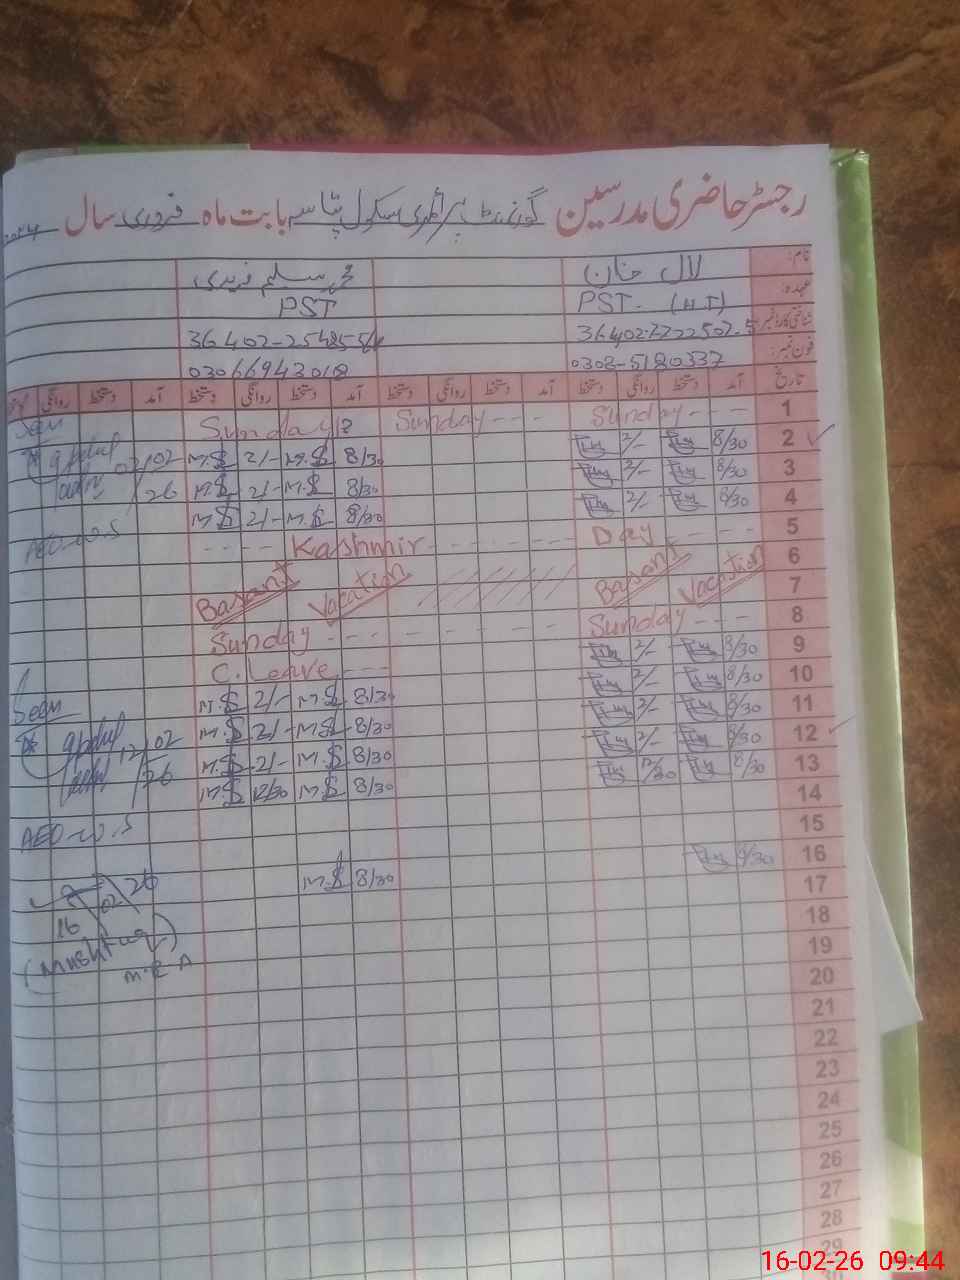 رجسٹر حاضری مدرسین گورنمنٹ پرائمری سکول بابت ماہ فروری سال
نام: لال خان محمد سلیم فریدی
عہدہ: PST. (H T) PST
شناختی کارڈ نمبر:
فون نمبر: 0308-5180337 03066943018
تاریخ آمد دستخط روانگی دستخط آمد دستخط روانگی دستخط آمد روانگی دستخط آمد دستخط روانگی
1 Sunday - - - Sunday - - - Sunday
Seen
2 8/30 2/- 8/30 M.S 2/- M.S
02/02
3 8/30 2/- 8/30 M.S 2/- M.S
26
4 8/30 2/- 8/30 M.S 2/- M.S
5 Day - - - Kashmir - - - -
AEO-W.S
6
7 Basant Vacation Basant Vacation
8 Sunday - - - Sunday - - -
9 8/30 2/- C. Leave - - -
10 8/30 2/- 8/30 M.S 2/- M.S
Seen
11 8/30 2/- 8/30 M.S 2/- M.S
12 8/30 2/- 8/30 M.S 2/- M.S
12/02
13 8/30 12/30 8/30 M.S 12/30 M.S
26
14
15
AEO-W.S
16 8/30 8/30 M.S
17
16 02 26
18
19
(Mushtaq)
20
M.E.A
21
22
23
24
25
26
27
28
29
16-02-26 09:44